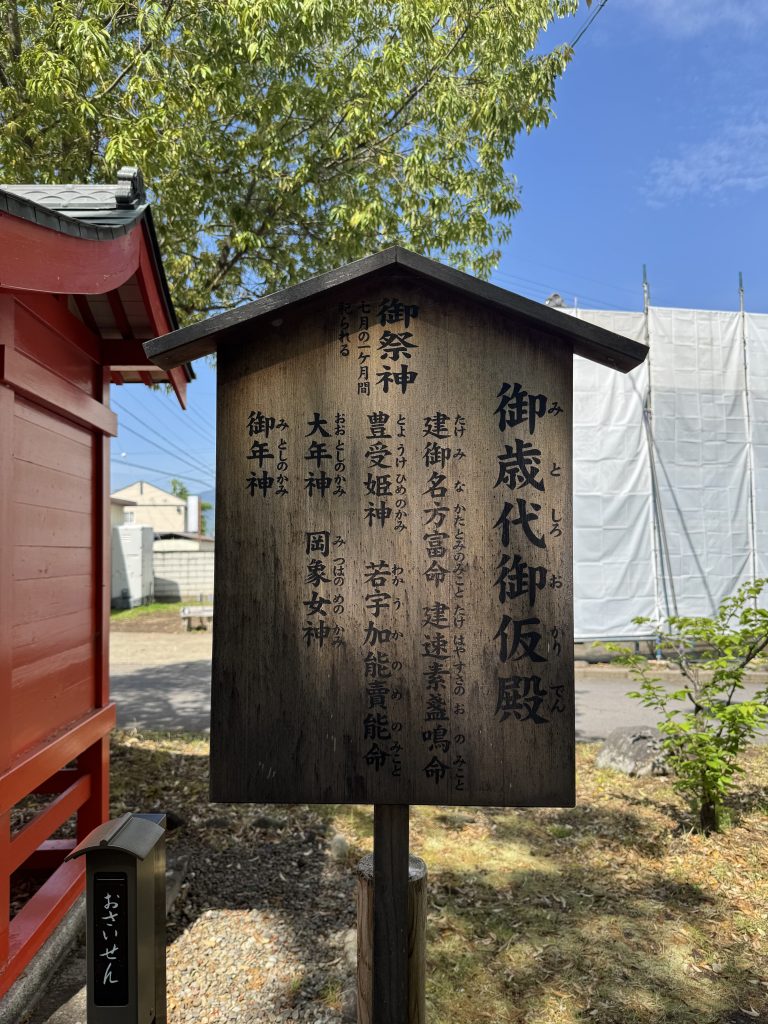 御歳代御仮殿
みとしろおかりでん
御祭神
七月の一ケ月間
祀られる
建御名方富命 建速素盞鳴命
たけみなかたとみのみこと たけはやすさのおのみこと
豊受姫神 若宇加能賣能命
とようけひめのかみ わかうかのめのみこと
大年神 岡象女神
おおとしのかみ みつはのめのかみ
御年神
みとしのかみ
おさいせん